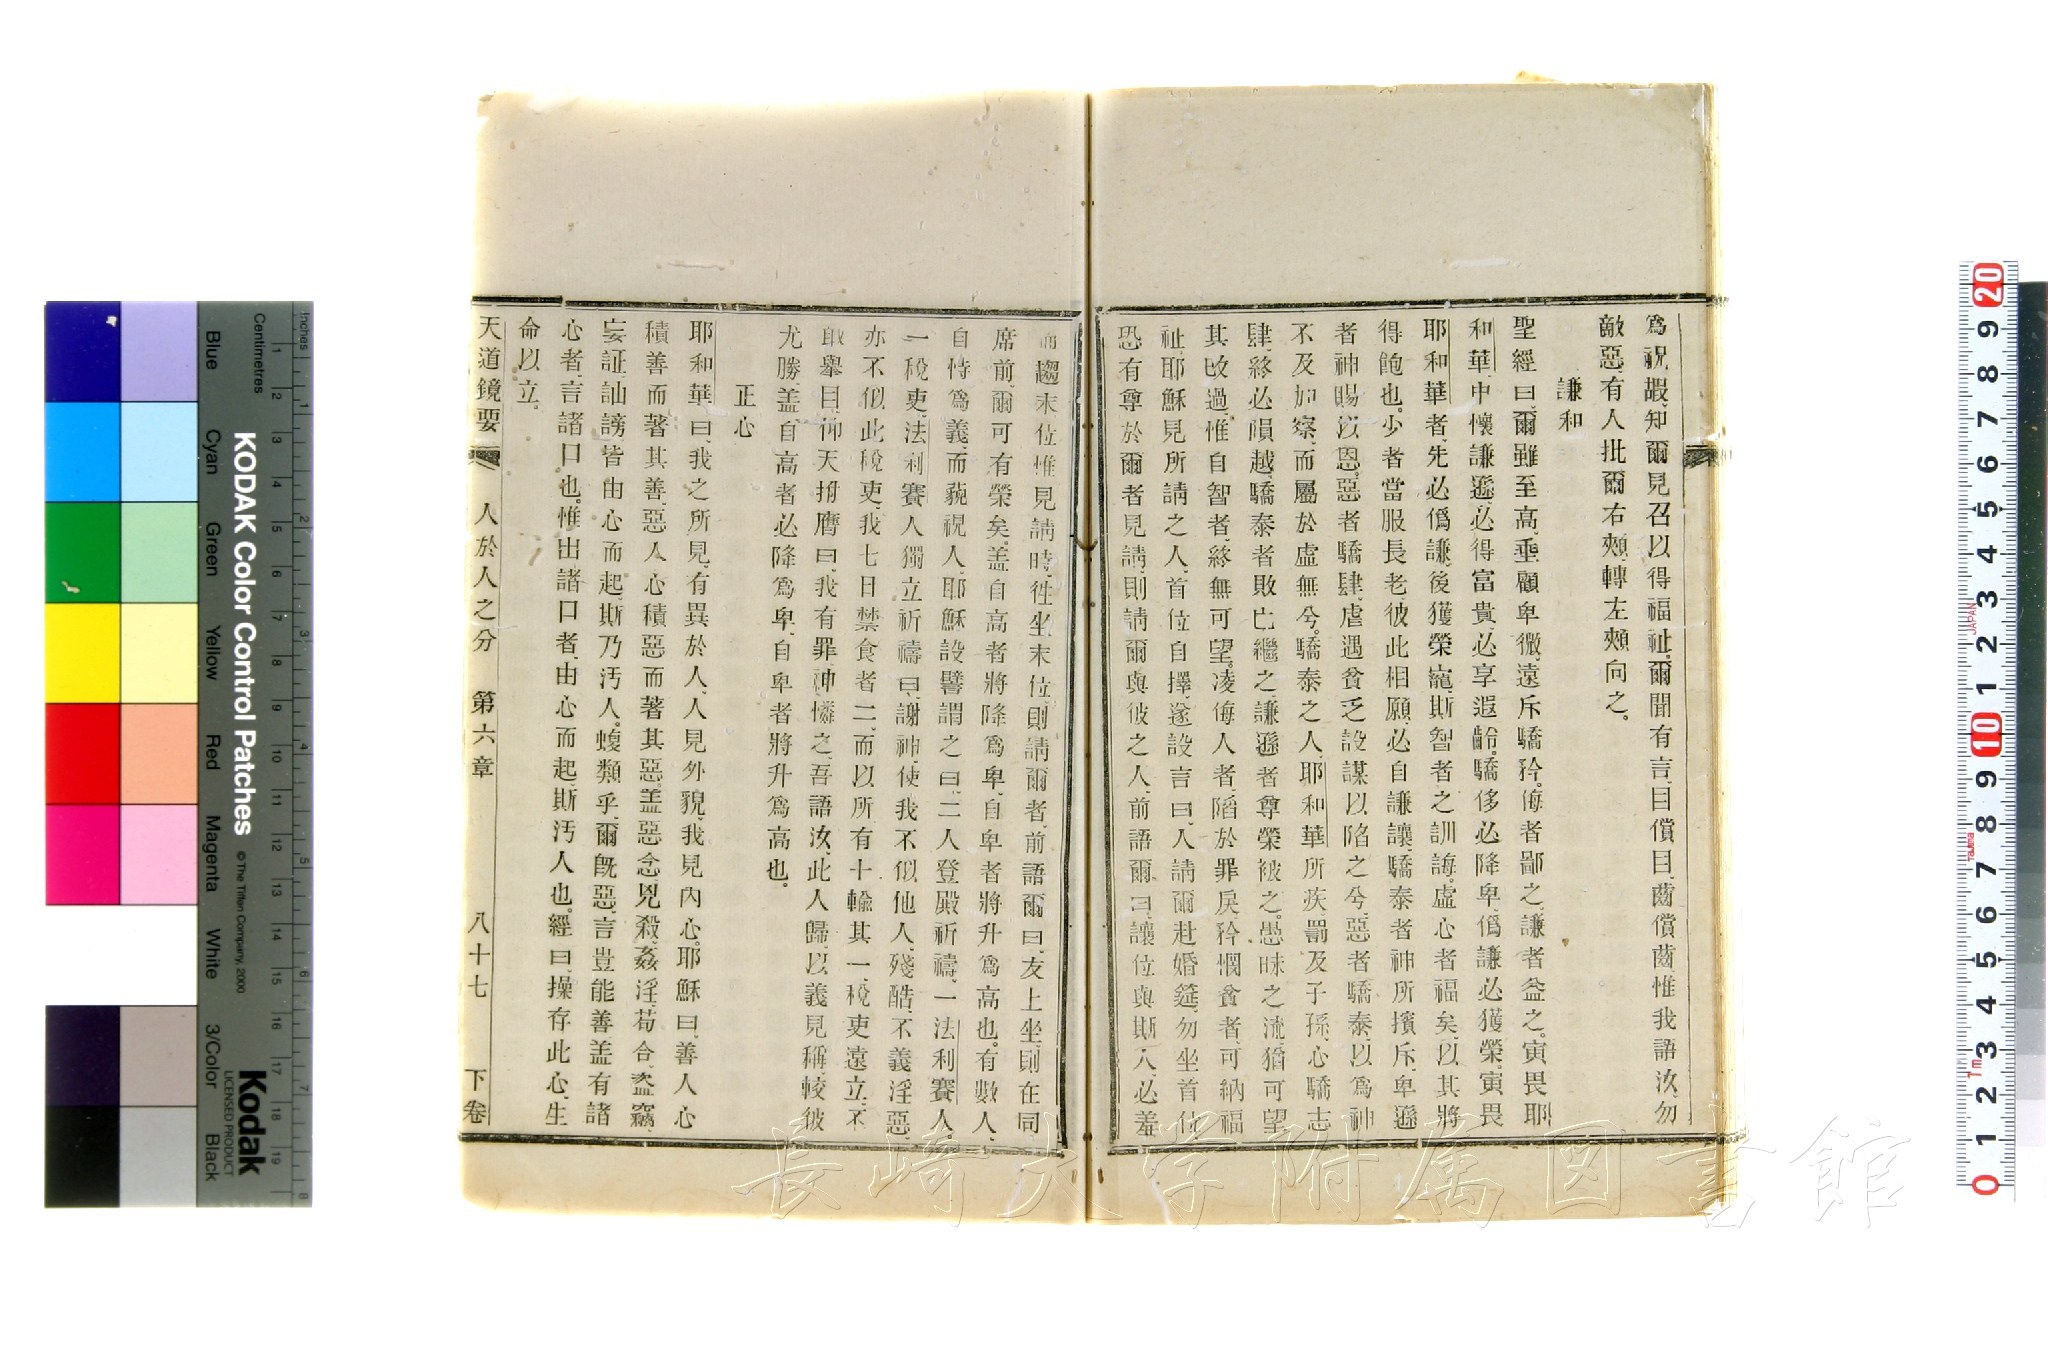 爲祝嘏知爾見召以得福祉爾聞有言目償目、齒償齒、惟我語汝、勿
敵惡有人批爾右頰、轉左頰向之。
謙和
聖經曰、爾雖至高、垂顧卑微、遠斥驕矜。侮者鄙之、謙者益之。寅畏耶
和華、中懷謙遜、必得富貴、必享遐齡。驕侈必降卑、僞謙必獲榮。寅畏
耶和華者、先必僞謙、後獲榮寵、斯智者之訓誨。虛心者福矣、以其將
得飽也。少者當服長老、彼此相願、必自謙讓、驕泰者神所擯斥、卑遜
者神賜汝恩。惡者驕肆、虐遇貧乏、設謀以陷之兮、惡者驕泰、以爲神
不及加察、而屬於虛無兮。驕泰之人、耶和華所疾、罰及子孫、心驕志
肆、終必隕越、驕泰者敗亡繼之、謙遜者尊榮被之。愚昧之流、猶可望
其改過、惟自智者、終無可望。凌侮人者、陷於罪戾、矜憫貧者、可納福
祉、耶穌見所請之人、首位自擇、遂設言曰、人請爾赴婚筵、勿坐首位、
恐有尊於爾者見請、則請爾與彼之人、前語爾曰、讓位與斯人、必羞
而趨末位、惟見請時、徃坐末位、則請爾者、前語爾曰、友上坐、則在同
席前、爾可有榮矣、蓋自高者將降爲卑、自卑者將升爲高也。有數人、
自恃爲義、而藐視人、耶穌設譬謂之曰、二人登殿祈禱、一法利賽人、
一稅吏、法利賽人獨立祈禱曰、謝神、使我不似他人、殘酷、不義、淫惡、
亦不似此稅吏、我七日禁食者二、而以所有十輸其一、稅吏遠立、不
敢舉目、仰天拊膺曰、我有罪、神憐之、吾語汝、此人歸、以義見稱、較彼
尤勝、蓋自高者必降爲卑、自卑者將升爲高也。
正心
耶和華曰、我之所見、有異於人、人見外貌、我見內心。耶穌曰、善人心
積善而著其善、惡人心積惡而著其惡、蓋惡念、兇殺、姦淫、苟合、盜竊、
妄証、訕謗、皆由心而起、斯乃汚人。蝮類乎、爾旣惡、言豈能善、蓋有諸
心者、言諸口也。惟出諸口者、由心而起、斯汚人也。經曰、操存此心、生
命以立。
天道鏡要 人於人之分 第六章 八十七 下卷
長崎大学附属図書館
KODAK Color Control Patches
© The Tiffen Company, 2000
Kodak
LICENSED PRODUCT
Inches
Centimetres
Blue
Cyan
Green
Yellow
Red
Magenta
White
3/Color
Black